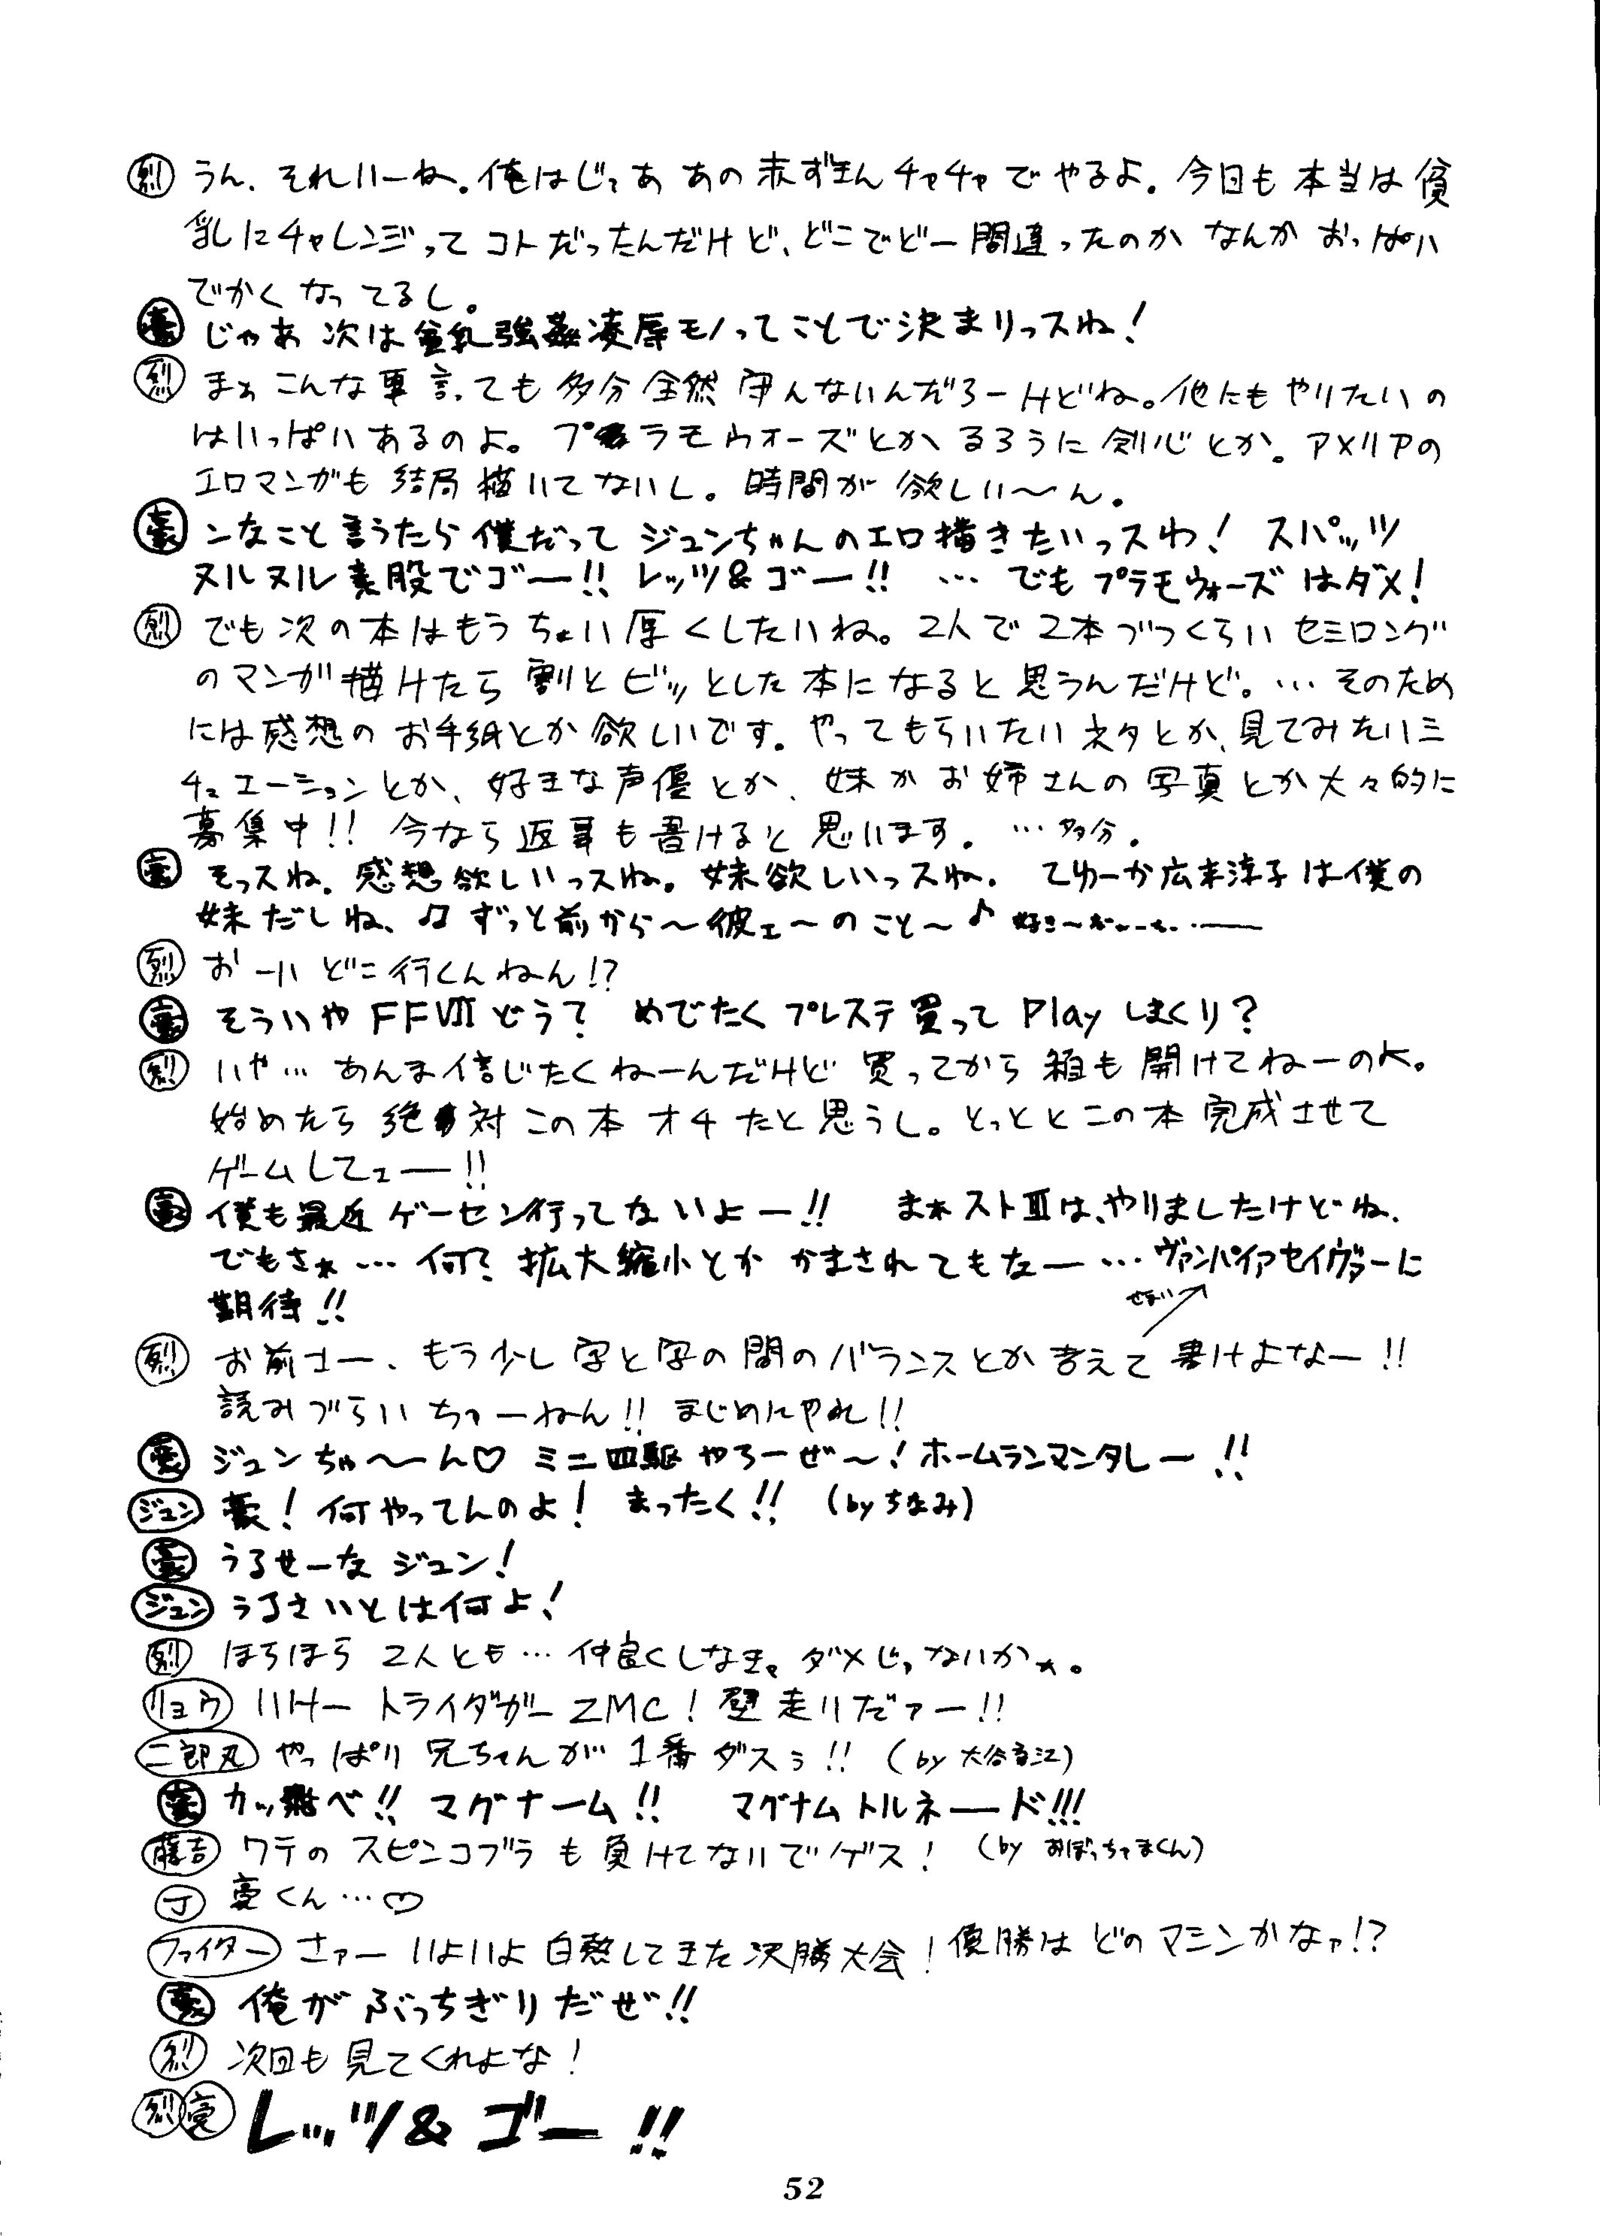 烈 うん、それいーね。俺はじゃあ あの赤ずきんチャチャでやるよ。今日も本当は貧
乳にチャレンジってコトだったんだけど、どこでどー間違ったのか なんか おっぱい
でかくなってるし。
豪 じゃあ 次は貧乳強姦凌辱モノってことで決まりっスね!
烈 まぁ こんな事言っても多分全然守んないんだろーけどね。他にもやりたいの
はいっぱいあるのよ。プラモウォーズとか るろうに剣心とか。アメリアの
エロマンガも結局描いてないし。時間が欲しい〜ん。
豪 ンなこと言うたら僕だって ジュンちゃんのエロ描きたいっスわ! スパッツ
ヌルヌル素股でゴー!! レッツ&ゴー!! … でも プラモウォーズはダメ!
烈 でも次の本はもうちょい厚くしたいね。2人で2本づつくらいセミロング
のマンガ描けたら割とビッとした本になると思うんだけど。…そのため
には感想のお手紙とか欲しいです。やってもらいたいネタとか、見てみたいシ
チュエーションとか、好きな声優とか、妹かお姉さんの写真とか大々的に
募集中!! 今なら返事も書けると思います。…多分。
豪 そっスね。感想欲しいっスね。妹欲しいっスね。 てゆーか広末涼子は僕の
妹だしね、♫ずっと前から〜彼ェ〜のこと〜♪
烈 おーい どこ行くんねん!?
豪 そういや FFⅦ どう? めでたく プレステ買って Playしまくり?
烈 いや… あんま信じたくねーんだけど 買ってから箱も開けてねーのよ。
始めたら絶対この本オチたと思うし。とっととこの本完成させて
ゲームしてェー!!
豪 僕も最近ゲーセン行ってないよー!! まぁ ストⅢは、やりましたけどね、
でもさぁ… 何? 拡大縮小とか かまされてもなー … ヴァンパイアセイヴァーに
せまい
期待!!
烈 お前さー、もう少し字と字の間のバランスとか考えて書けよなー!!
読みづらいちゅーねん!! まじめにやれ!!
豪 ジュンちゃ〜ん♡ ミニ四駆やろーぜ〜! ホームランマンタレー!!
ジュン 豪! 何やってんのよ! まったく!! (byちなみ)
豪 うるせーな ジュン!
ジュン うるさいとは何よ!
烈 ほらほら 2人とも… 仲良くしなきゃ ダメじゃないかぁ。
リョウ いけー トライダガー ZMC! 壁走りだァー!!
二郎丸 やっぱり 兄ちゃんが 1番ダスぅ!! (by 大谷育江)
豪 カッ飛べ!! マグナーム!! マグナムトルネード!!!
藤吉 ワテの スピンコブラも負けてないでゲス! (by おぼっちゃまくん)
J 豪くん…♡
ファイター さァー いよいよ白熱してきた決勝大会! 優勝は どのマシンかなァ!?
豪 俺が ぶっちぎりだぜ!!
烈 次回も見てくれよな!
烈 豪 レッツ&ゴー!!
52